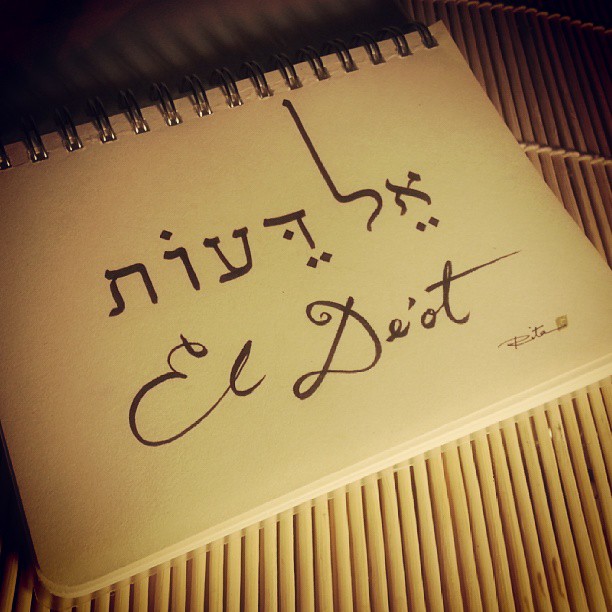 אֵל דֵּעוֹת
El De'ot
Rita